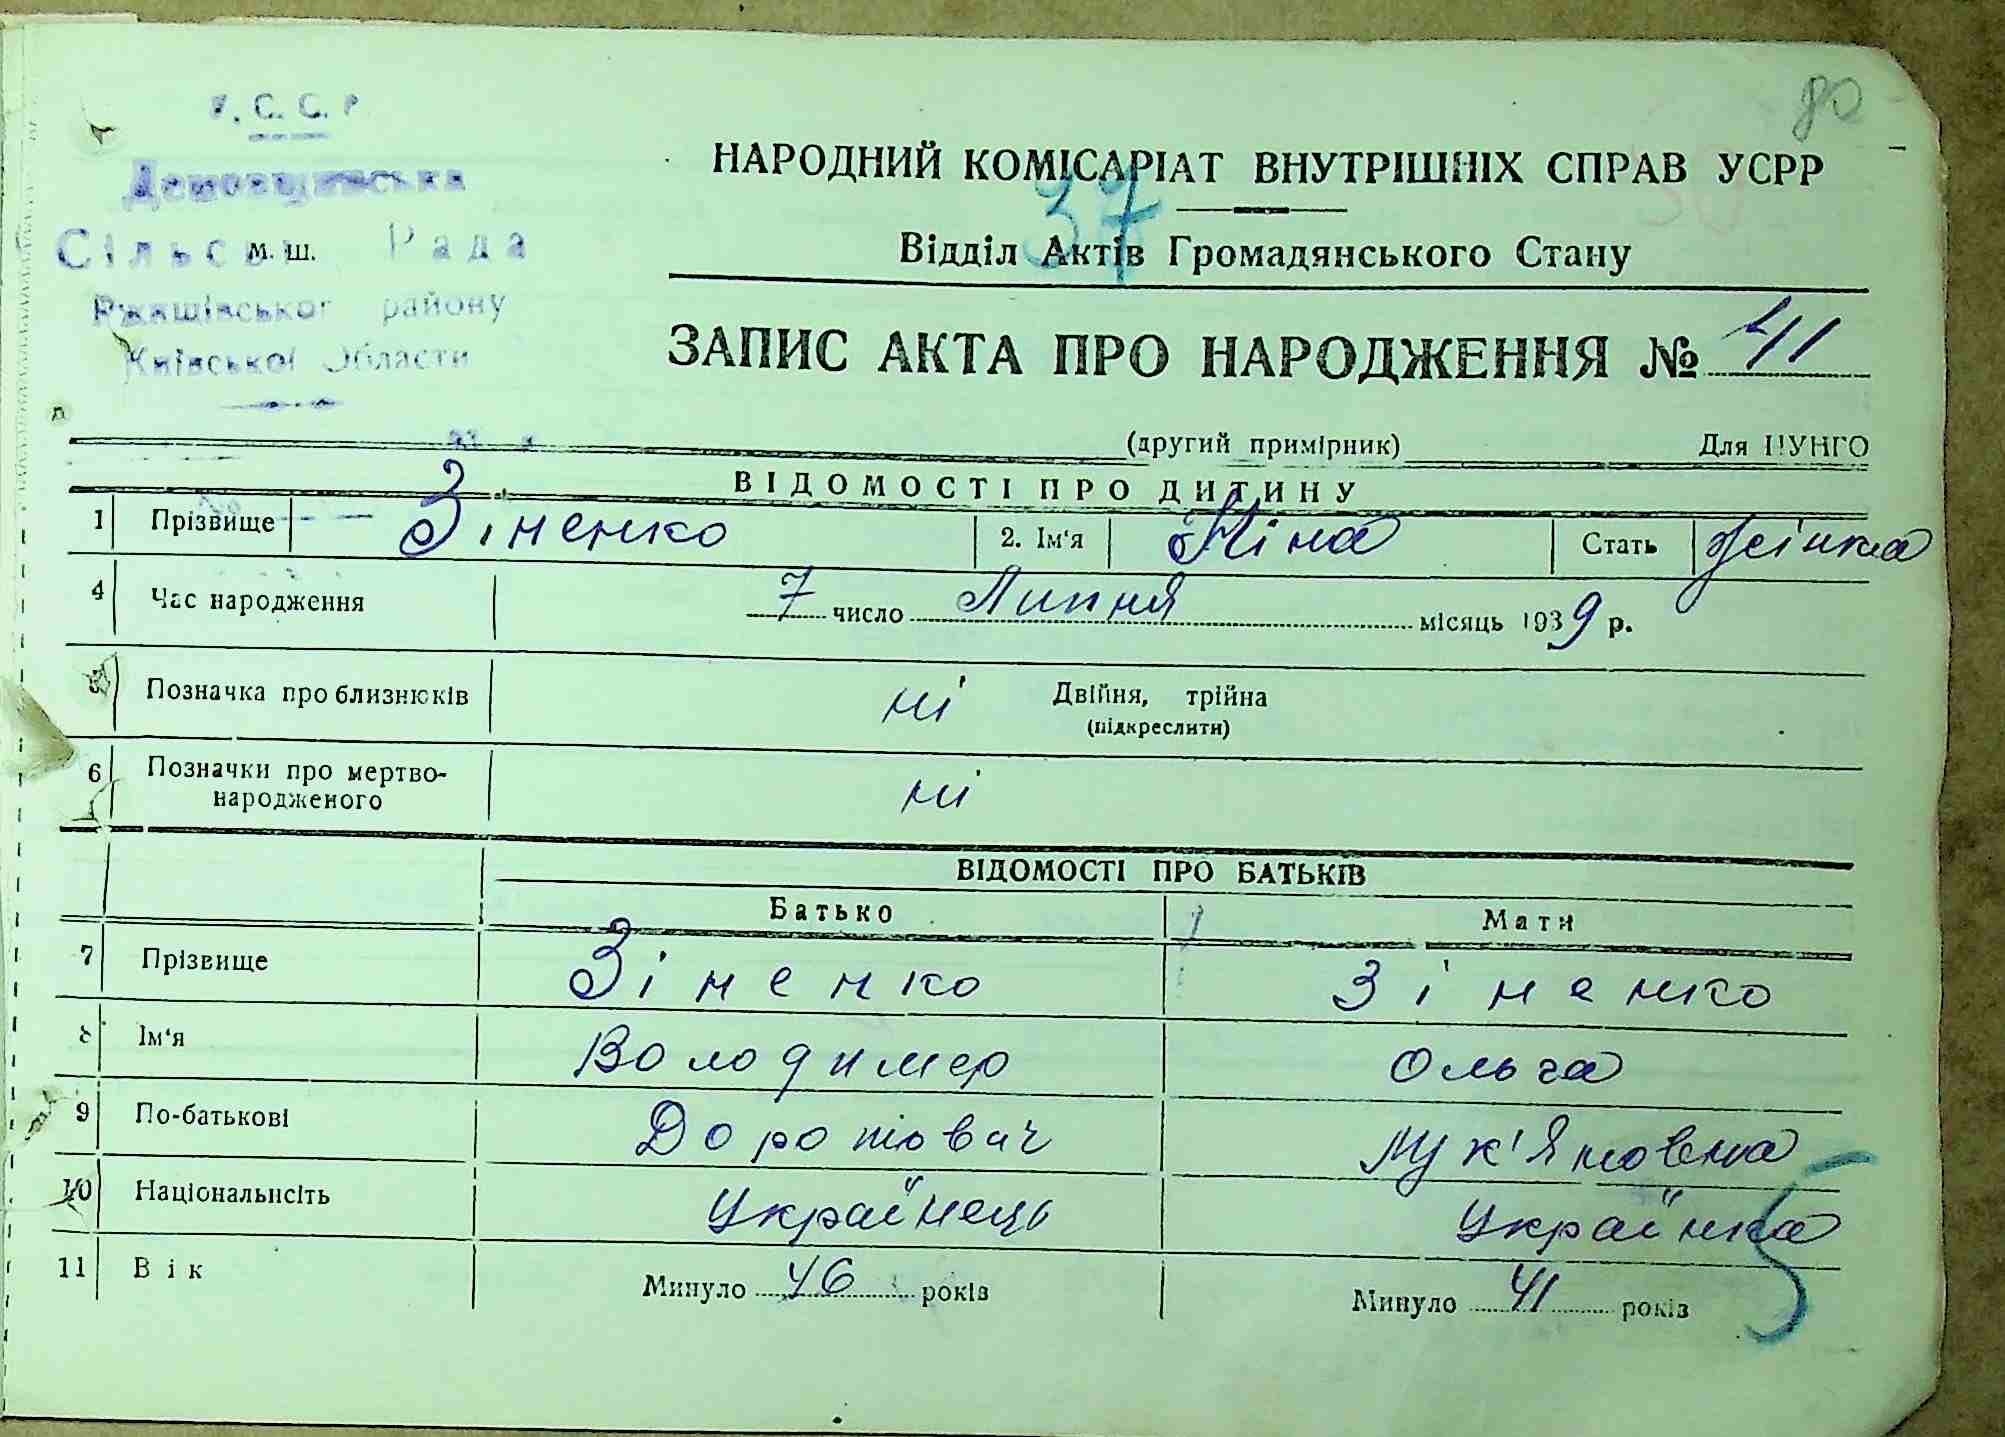 У. С. С. Р
Демовщинська
Сільська Рада
м. ш.
Ржищівського району
Київської Області
80
НАРОДНИЙ КОМІСАРІАТ ВНУТРІШНІХ СПРАВ УСРР
37
Відділ Актів Громадянського Стану
ЗАПИС АКТА ПРО НАРОДЖЕННЯ № 41
(другий примірник) Для ЦУНГО
ВІДОМОСТІ ПРО ДИТИНУ
1 Прізвище Зіненко 2. Ім'я Ніна Стать жінка
4 Час народження 7 число Липня місяць 1939 р.
5 Позначка про близнюків ні Двійня, трійна
(підкреслити)
6 Позначки про мертво-
народженого ні
ВІДОМОСТІ ПРО БАТЬКІВ
Батько Мати
7 Прізвище Зіненко Зіненко
8 Ім'я Володимер Ольга
9 По-батькові Доротович Лук'яновна
10 Національність Українець Українка
11 Вік Минуло 46 років Минуло 41 років
5